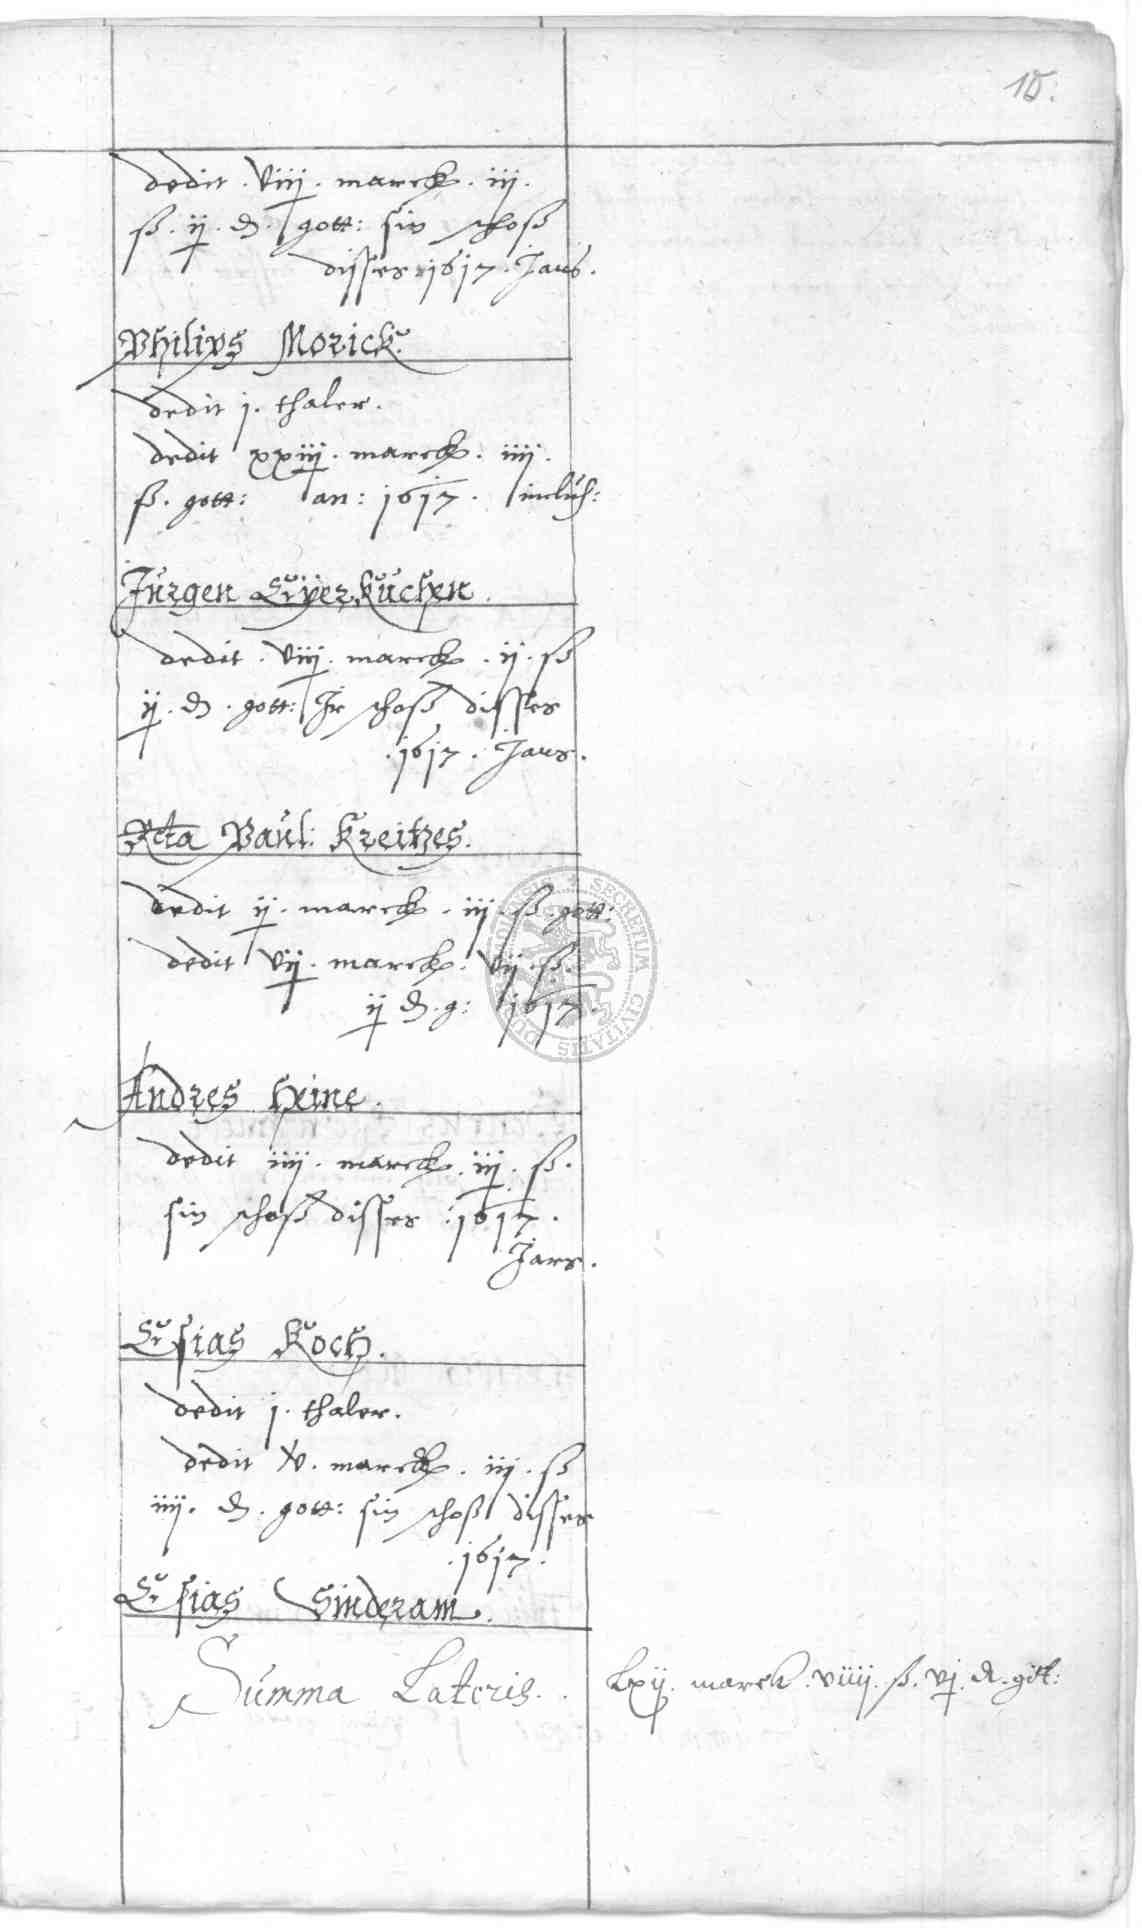 10.
dedit . viiij . marck . iij .
ß . ij . d . gott: sin schoß
disses 1617 . Jars .
Philips Morick .
dedit j . thaler .
dedit xxiij . marck . iiij .
ß . gott: an: 1617 . inclus:
Jürgen Eÿerkuchen .
dedit . viiij . marck . ij . ß
ij . d . gott: Jr schoß disses
. 1617 . Jars .
Rcta Paul: Kreitzes .
dedit ij . marck . iij . ß . gott:
dedit vij . marck . vij . ß .
ij d . g: 1617 .
Andres Heine .
dedit iiij . marck . iij . ß .
sin schoß disses . 1617 .
Jars .
Esias Koch .
dedit j . thaler .
dedit v . marck . iij . ß
iiij . d . gott: sin schoß disses
. 1617 .
Esias Sinderam .
Summa Lateris . Lxij . marck . viiij . ß . vj . d . gött:
SECRETUM CIVITATIS